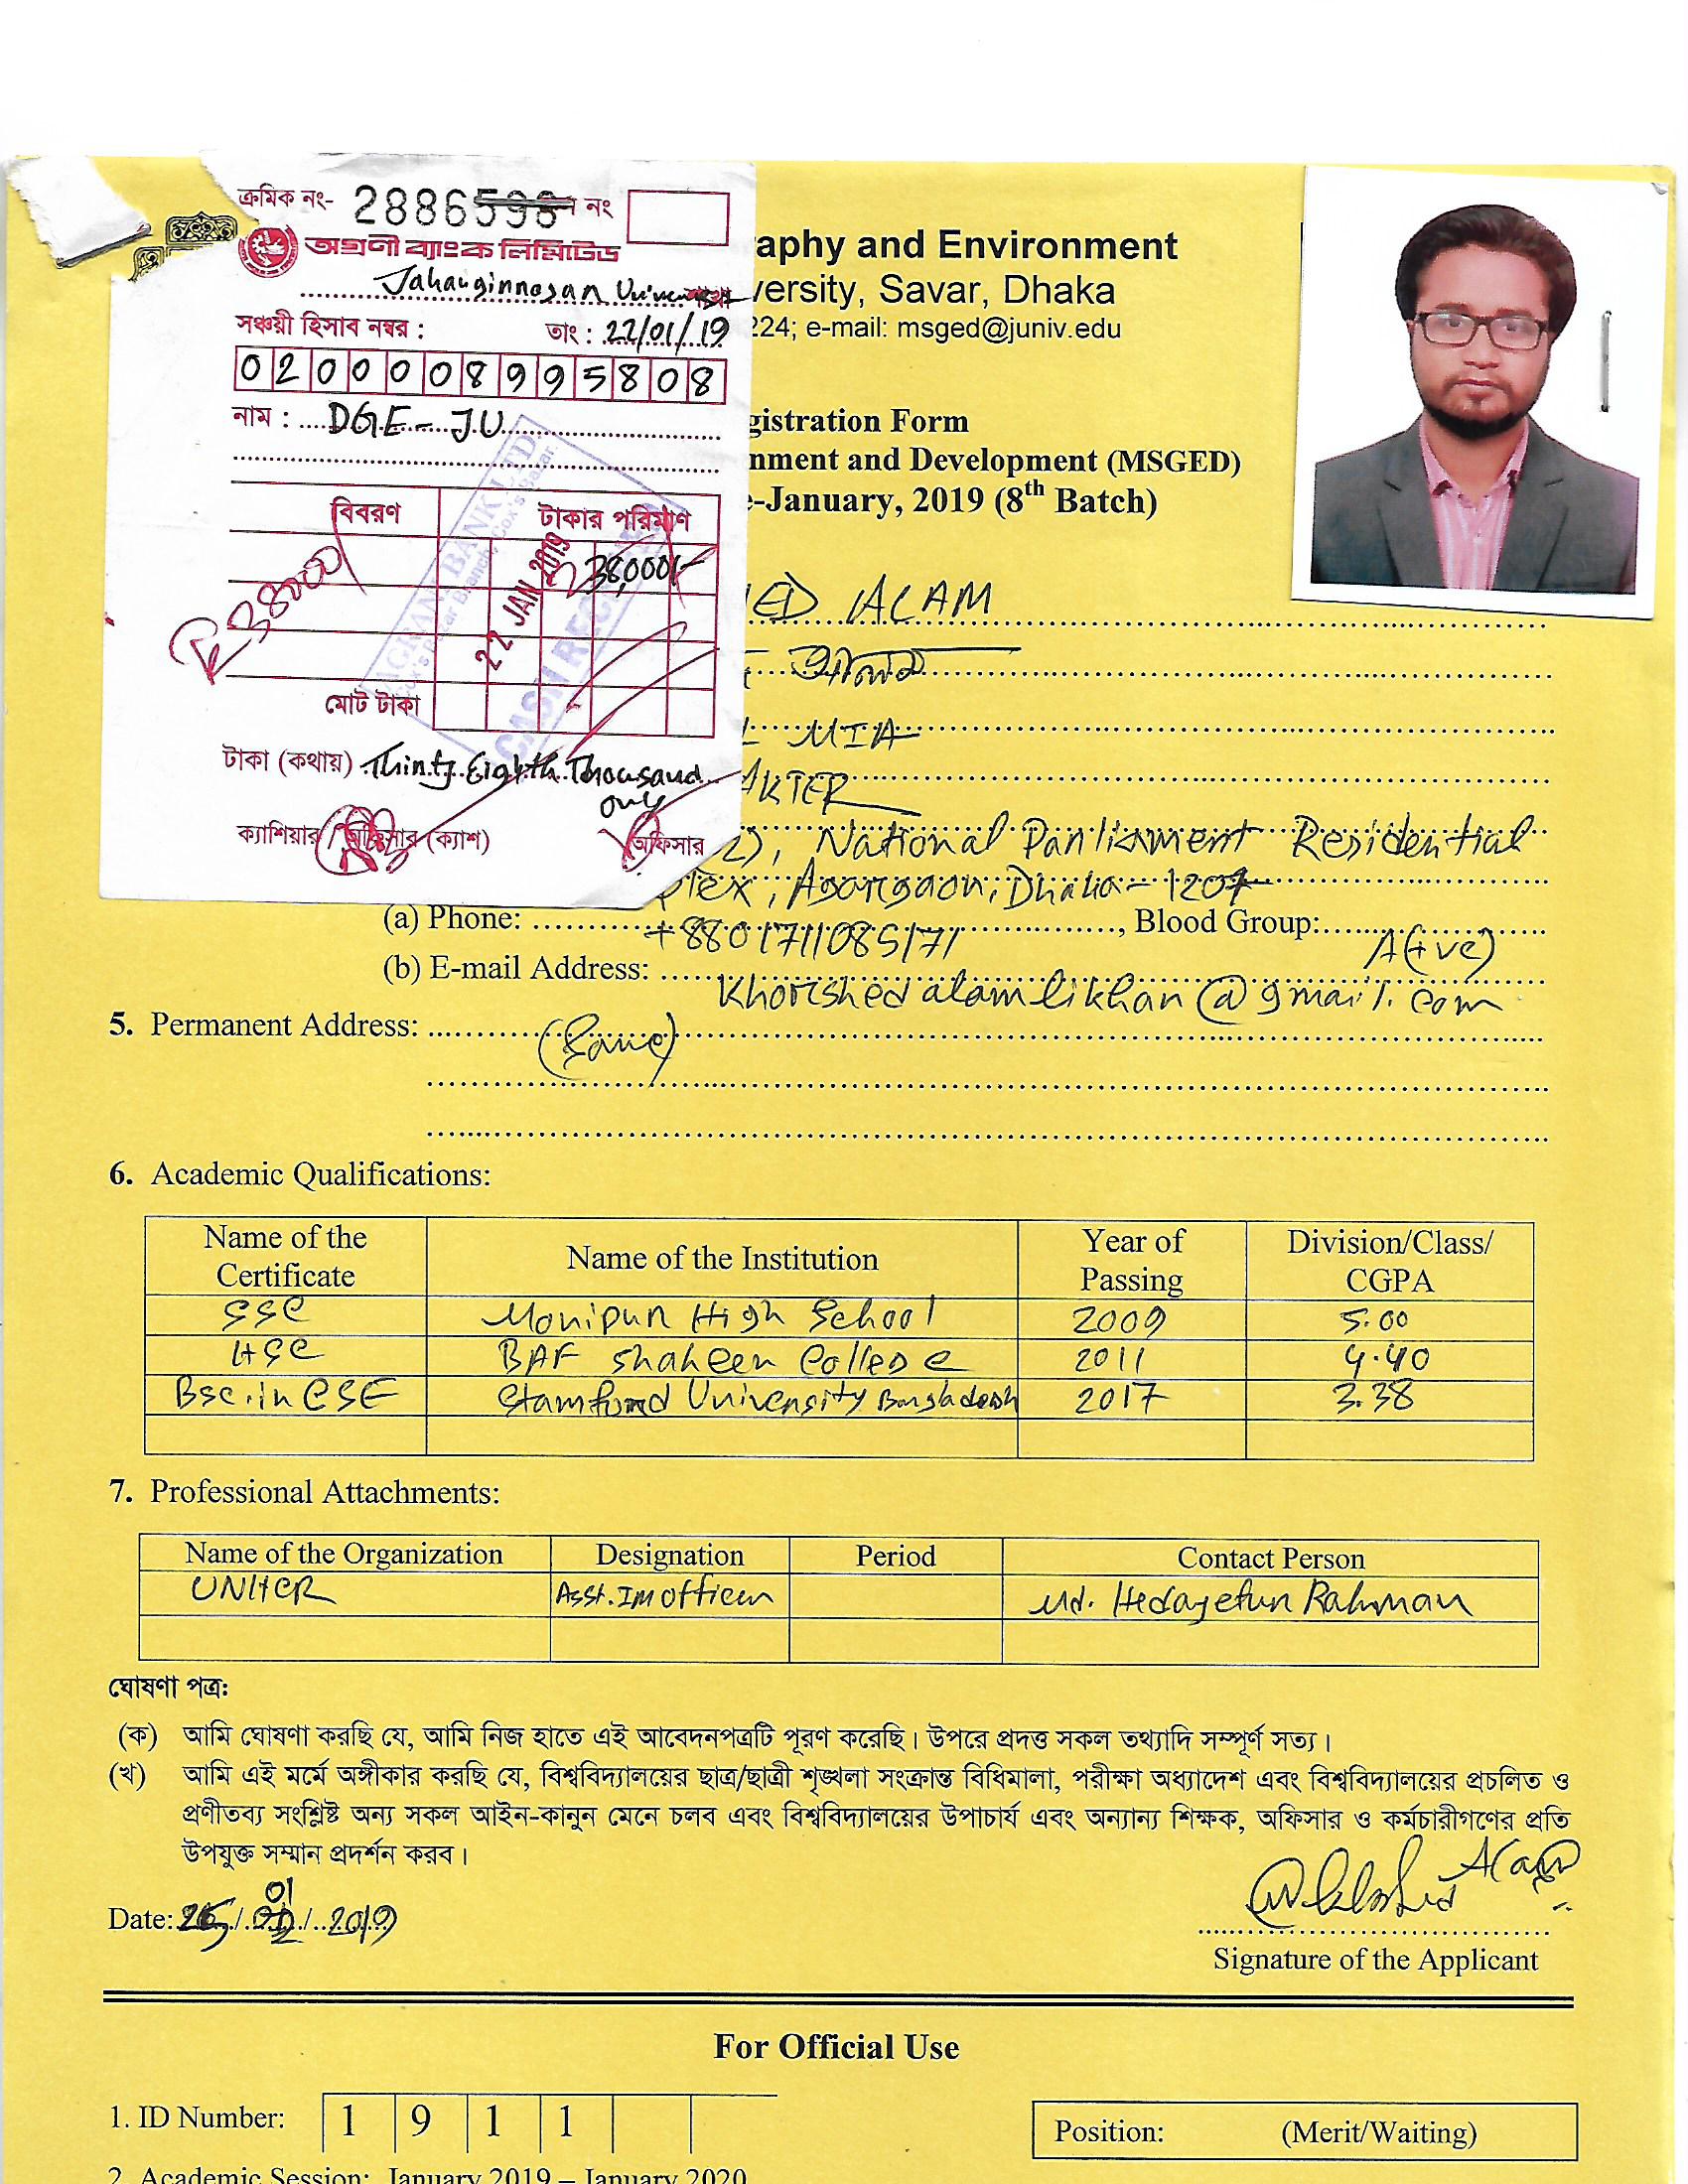 ক্রমিক নং- 2886598 নং
অগ্রণী ব্যাংক লিমিটেড
Jahangirnagar University শাখা
সঞ্চয়ী হিসাব নম্বর : তাং : 22/01/19
0200008995808
নাম : DGE - JU
বিবরণ টাকার পরিমাণ
38000/ 38,000/-
AGRANI BANK LTD.
Cox's Bazar Branch, Cox's Bazar.
22 JAN 2019
মোট টাকা
টাকা (কথায়) Thirty Eighth Thousand
only
ক্যাশিয়ার অফিসার (ক্যাশ) অফিসার
aphy and Environment
versity, Savar, Dhaka
224; e-mail: msged@juniv.edu
gistration Form
nment and Development (MSGED)
e-January, 2019 (8th Batch)
ED ALAM
আলম
MIA
AKTER
2), National Parliament Residential
plex, Agargaon, Dhaka-1207
(a) Phone: +8801711085171, Blood Group: A(+ve)
(b) E-mail Address: Khorshedalamlikhan@gmail.com
5. Permanent Address: (Same)
6. Academic Qualifications:
Name of the Certificate Name of the Institution Year of Passing Division/Class/CGPA
SSC Monipur High School 2009 5.00
HSC BAF Shaheen College 2011 4.40
Bsc.in CSE Stamford University Bangladesh 2017 3.38
7. Professional Attachments:
Name of the Organization Designation Period Contact Person
UNHCR Asst. IM officer Md. Hedayetur Rahman
ঘোষণা পত্র:
(ক) আমি ঘোষণা করছি যে, আমি নিজ হাতে এই আবেদনপত্রটি পূরণ করেছি। উপরে প্রদত্ত সকল তথ্যাদি সম্পূর্ণ সত্য।
(খ) আমি এই মর্মে অঙ্গীকার করছি যে, বিশ্ববিদ্যালয়ের ছাত্র/ছাত্রী শৃঙ্খলা সংক্রান্ত বিধিমালা, পরীক্ষা অধ্যাদেশ এবং বিশ্ববিদ্যালয়ের প্রচলিত ও
প্রণীতব্য সংশ্লিষ্ট অন্য সকল আইন-কানুন মেনে চলব এবং বিশ্ববিদ্যালয়ের উপাচার্য এবং অন্যান্য শিক্ষক, অফিসার ও কর্মচারীগণের প্রতি
উপযুক্ত সম্মান প্রদর্শন করব।
Date: 25/01/2019
Signature of the Applicant
For Official Use
1. ID Number: 1 9 1 1
Position: (Merit/Waiting)
2. Academic Session: January 2019 – January 2020